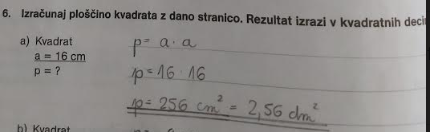 6. Izračunaj ploščino kvadrata z dano stranico. Rezultat izrazi v kvadratnih
a) Kvadrat
a = 16 cm
p = ?
p = a · a
p = 16 · 16
p = 256 cm² = 2,56 dm²
b) Kvadrat